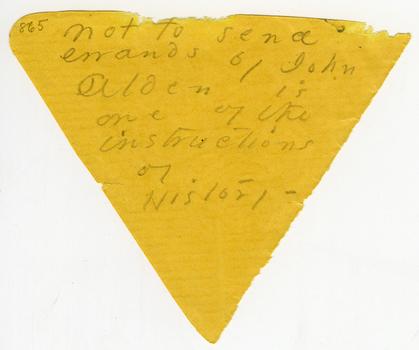 865
not to send
errands by John
Alden is
one of the
instructions
of
History -